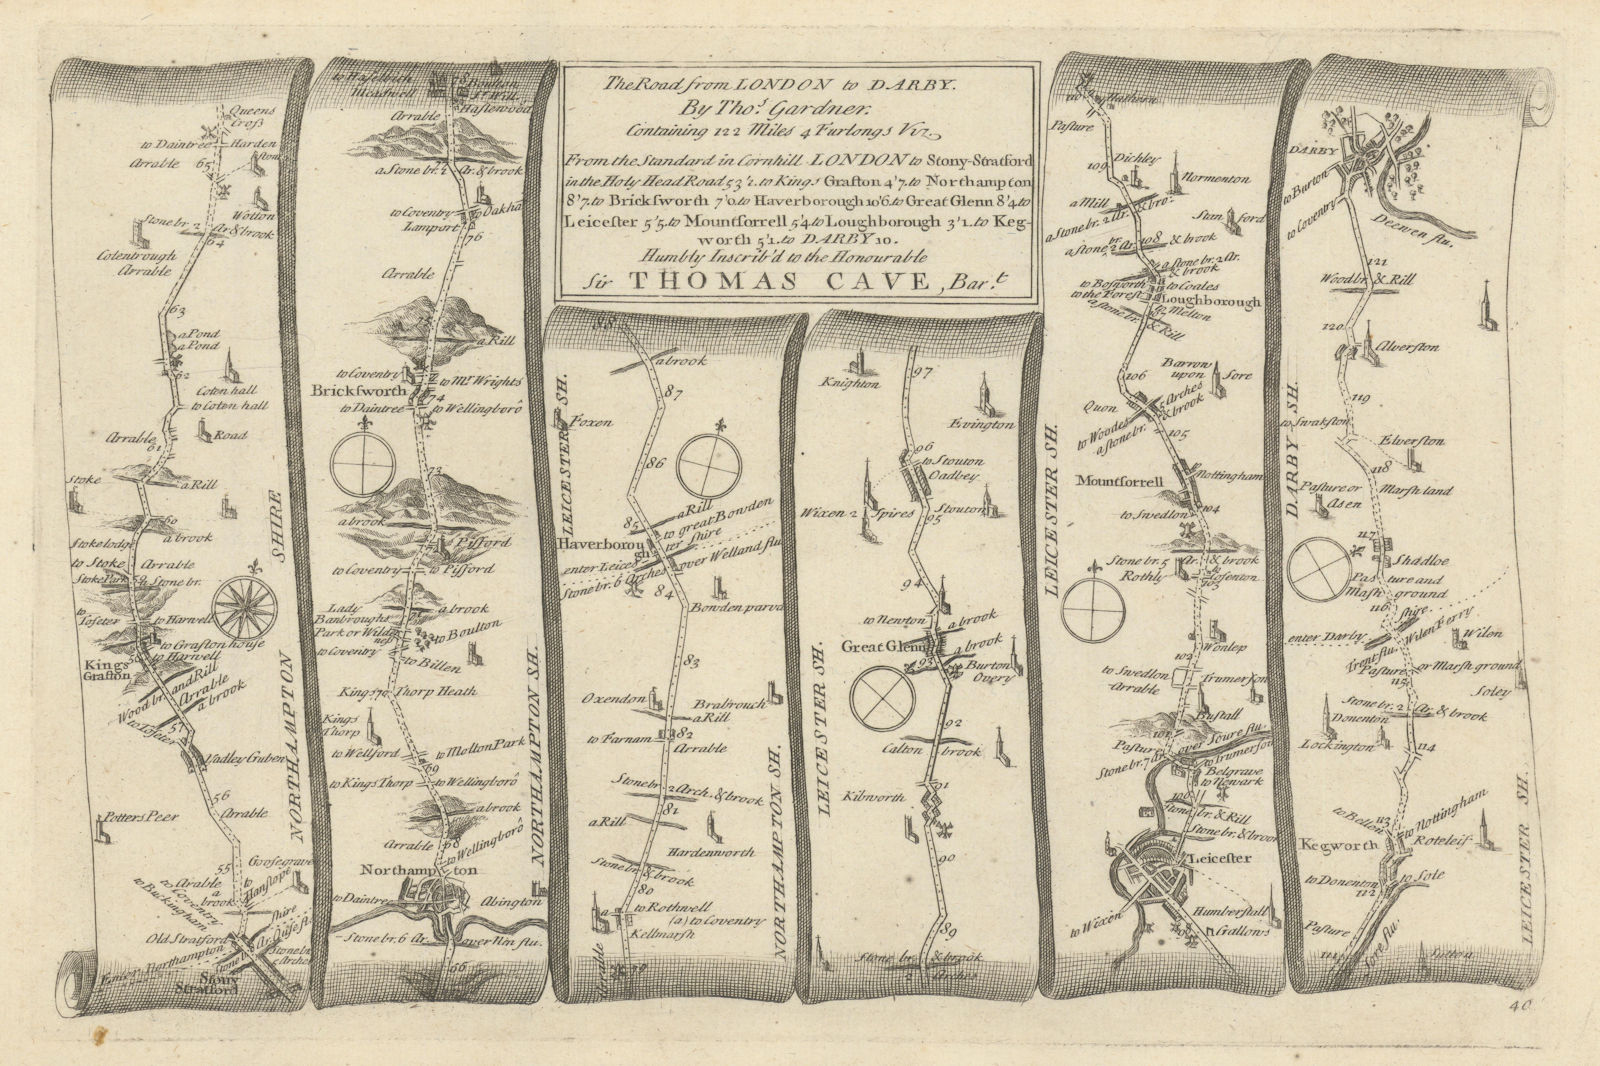 The Road from LONDON to DARBY.
By Thos. Gardner.
Containing 122 Miles 4 Furlongs Viz.
From the Standard in Cornhill LONDON to Stony-Stratford
in the Holy Head Road 53'2. to Kings Grafton 4'7. to Northampton
8'7. to Bricksworth 7'0. to Haverborough 10'6. to Great Glenn 8'4. to
Leicester 5'5. to Mountsorrell 5'4. to Loughborough 3'1. to Keg-
worth 5'1. to DARBY 10.
Humbly Inscrib'd to the Honourable
Sir THOMAS CAVE, Bart.
Queens
Cross
to Daintree
Harden
ston
Arrable
65
Wotton
Stone br. 2 Ar & brook
64
Colentrough
Arrable
63
a Pond
a Pond
62
Coten hall
to Coten hall
Road
Arrable
61
Stoke
a Rill
60
a brook
Stoke lodge
to Stoke
Arrable
Stoke Park
59
Stone br.
to
Toseter
to Harwell
to Grafton house
to Harwell
58
Kings
Grafton
Wood br. and Rill
Arrable
a brook
to Toseter
57
Yadley Guben
56
Arrable
Potters Peer
55
Goosegrave
to
Hanslope
to Arrable
to Coventry
a
brook
Buckingham
Old Stratford
shire
Enter Northampton
Stone br. 8 Ar. Ouse flu.
Stone br.
5 Arches
Stony
Stratford
NORTHAMPTON SHIRE
to Haselbich
Meadwell
78
Boughton
St. Will.
Haslewood
Arrable
a Stone br. 2 Ar. & brook
to Coventry
to Oakham
Lamport
76
Arrable
75
a Rill
to Coventry
to Mr. Wrights
Bricksworth
74
to Daintree
to Wellingboro
73
a brook
Pisford
to Coventry
to Pisford
Lady
Banbroughs
Park or Wilder
ness
71
a brook
to Boulton
to Coventry
to Billen
Kings
70
Thorp Heath
Kings
Thorp
to Wellford
to Molton Park
69
to Kings Thorp
to Wellingboro
a brook
Arrable
68
to Wellingboro
Northampton
to Daintree
Abington
Stone br. 6 Ar. over Nin flu.
66
NORTHAMPTON SH.
88
a brook
87
Foxen
86
85
a Rill
to great Bowden
Haverborough
enter Leicester shire
Stone br. 6 Arches over Welland flu
84
Bowden parva
83
Oxendon
Brabrouch
a Rill
to Farnam
82
Arrable
Stone br. 2 Arch. & brook
81
a Rill
Hardenworth
Stone br. & brook
80
to Rothwell
(a) to Coventry
a
Kellmarsh
Arrable
79
LEICESTER SH.
NORTHAMPTON SH.
97
Knighton
Evington
96
to Stouton
Oadbey
Wixen 2 Spires
Stouton
95
94
to Newton
a brook
Great Glenn
a brook
93
Burton
Overy
92
Calton brook
91
Kibworth
90
89
Stone br. & brook
Arches
LEICESTER SH.
to Hathern
Pasture
109
Dichley
Normenton
a Mill
a Stone br. 2 Ar. & bro.
Stam ford
a Stone br. 2 Ar. 108 & brook
a Stone br. 2 Ar.
& brook
to Bosworth
to Coales
to the Forest
Loughborough
to Melton
a Stone br. & Rill
106
Barron
upon Sore
Quon
5 Arches
& brook
to Woodes
a Stone br.
105
Mountsorrell
Nottingham
to Swedlon
104
Stone br. 5 Ar. & brook
Rothly
to Cosenton
103
Wonlep
102
to Swedlon
Arrable
Trumerson
Bustall
101
Pasture
over Soure flu.
Stone br. 7 Ar.
to Trumerson
Belgrave
to Newark
100
Stone br. & Rill
Stone br. & brook
Leicester
to Wixen
Humberstall
98
Gallows
LEICESTER SH.
DARBY
to Burton
to Coventry
Deewen flu.
121
Wood br. & Rill
120
Alverston
119
to Swakston
Elverston
118
Pasture or
Marsh land
Asen
117
Shadloe
Pasture and
Mash ground
116
shire
Wilen Ferry
enter Darby
Wilon
Trent flu.
Pasture or Marsh ground
115
Soley
Stone br. 2 Ar. & brook
Donenton
Lockington
114
to Nottingham
to Bellon
113
Kegworth
Roteleif
to Donenton
to Sole
112
Pasture
111
Sore flu.
Sutton
DARBY SH.
LEICESTER SH.
40